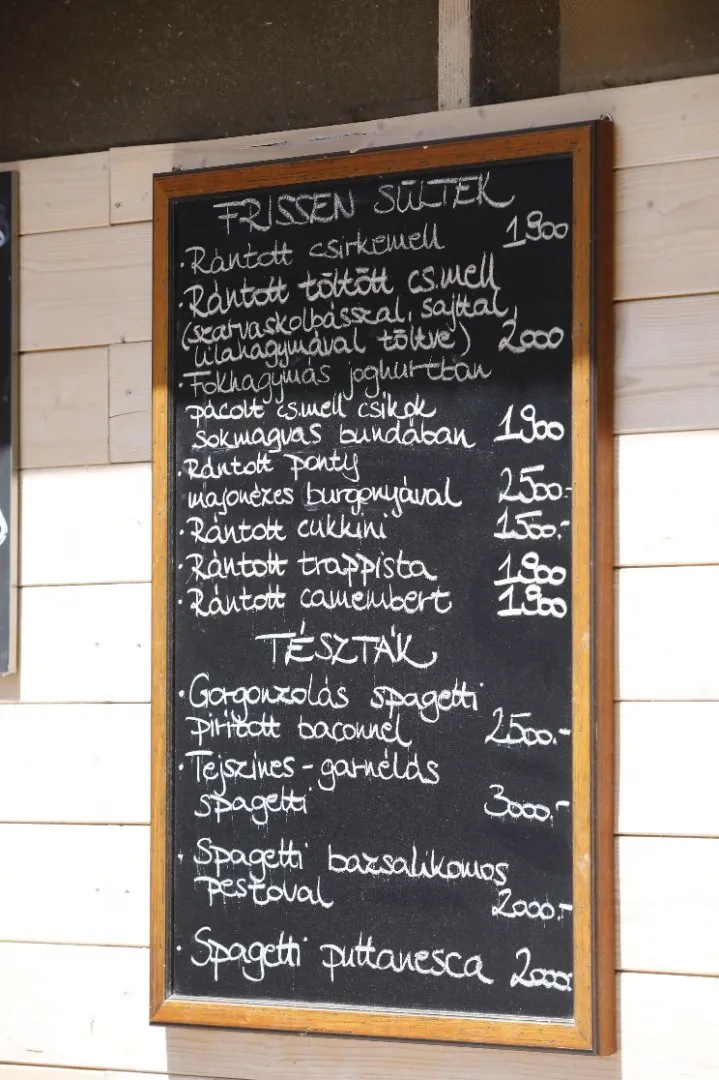 FRISSEN SÜLTEK
· Rántott csirkemell 1900
· Rántott töltött cs.mell
(szarvaskolbásszal, sajttal,
lilahagymával töltve) 2000
· Fokhagymás joghurtban
pácolt cs.mell csíkok
sokmagvas bundában 1900
· Rántott ponty
majonézes burgonyával 2500.-
· Rántott cukkini 1500.-
· Rántott trappista 1900
· Rántott camembert 1900
TÉSZTÁK
· Gorgonzolás spagetti
pirított baconnel 2500.-
· Tejszínes - garnélás
spagetti 3000.-
· Spagetti bazsalikomos
pestoval 2000.-
· Spagetti puttanesca 2000.